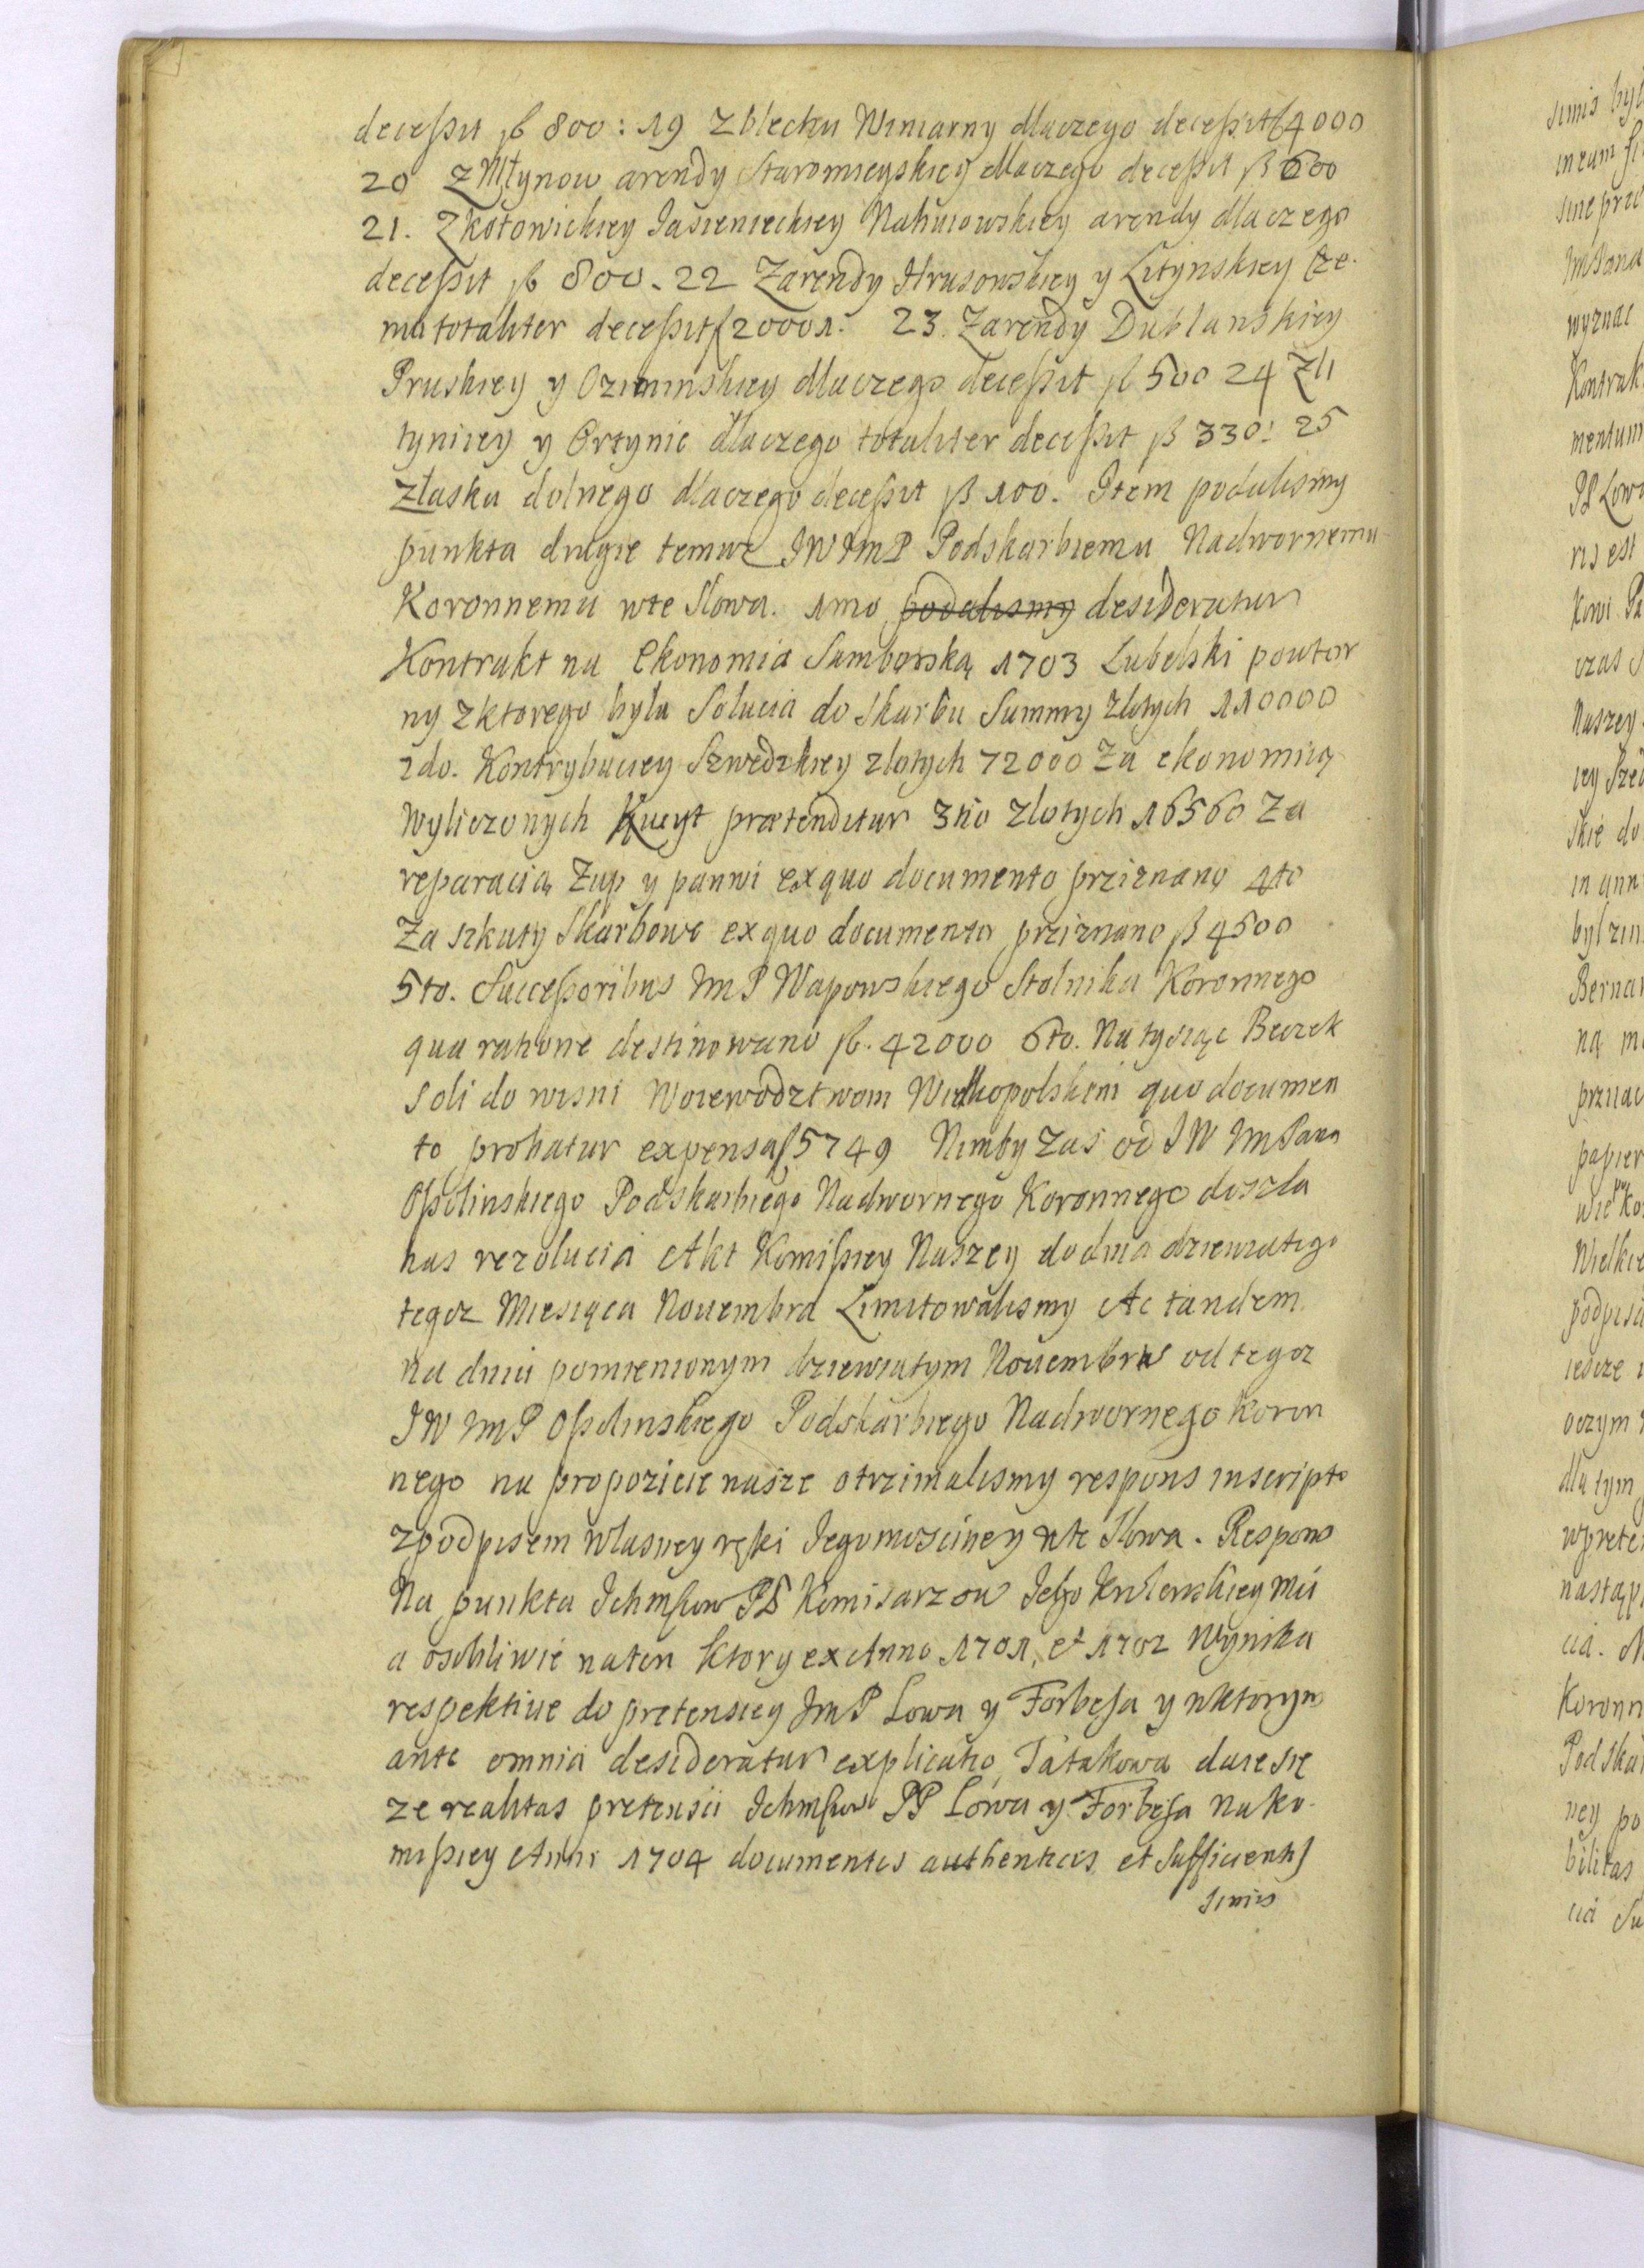 decessit fl 800: 19 Zblechu Winiarny dlaczego decessit fl 4000
20 Z Młynow arendy Staromieyskiey dlaczego decessit fl 600
21. Zkołowickiey Jasienieckiey Nahuiowskiey arendy dlaczego
decessit fl 800. 22 Zarendy Hrusowskiey y Litynskiey cze-
mu totaliter decessit fl 20001. 23. Zarendy Dublanskiey
Pruskiey y Oziminskiey dlaczego decessit fl 500 24 Zli
tynicy y Ortynic dlaczego totaliter decessit fl 330: 25
złasku dolnego dlaczego decessit fl 100. Item podalismy
punkta drugie temuz JWJmP Podskarbiemu Nadwornemu
Koronnemu wte Slowa. 1mo podalismy desideratur
Kontrakt na Ekonomia Samborską 1703 Lubelski powtor
ny zktorego była Solucia do Skarbu Summy Zlotych 110000
2do. Kontrybuciey Szwedzkiey zlotych 72000 Za ekonomią
wyliczonych Kwyt prætenditur 3tio Zlotych 16560 Za
reparacią Zup y panwi ex quo documento prziznano 4to
Za szkuty Skarbowe ex quo documento prziznano fl 4500
5to. Successoribus JmP Wapowskiego Stolnika Koronnego
qua ratione destinowano fl. 42000 6to. Na tysiąc Beczek
Soli do wisni Woiewodztwom Wielkopolskim quo documen
to probatur expensa fl 5749 Nimby Zas od JW JmPana
Ossolinskiego Podskarbiego Nadwornego Koronnego doszła
nas rezolucia Akt Komissiey Naszey do dnia dziewiatego
tegoz Miesiąca Nouembra Limitowalismy Ac tandem
na dniu pomienionym dziewiatym Nouembris od tegoz
JW JmP Ossolinskiego Podskarbiego Nadwornego Koron
nego na propozicie nasze otrzimalismy respons inscripto
zpodpisem własney ręki Jegomosciney wte Slowa. Respons
Na punkta Ichmsciow PP Komisarzow Jego Krolewskiey Mci
a osobliwie naten ktory ex Anno 1701, et 1702 Wynika
respektiue do pretensiey JmP Lowa y Forbesa y wktorym
ante omnia desideratur explicatio Tatakowa daie się
ze realitas pretensii Ichmsciow PP Lowa y Forbesa na Ko-
missiey Anni 1704 documentis authenticis et Sufficientis
simis